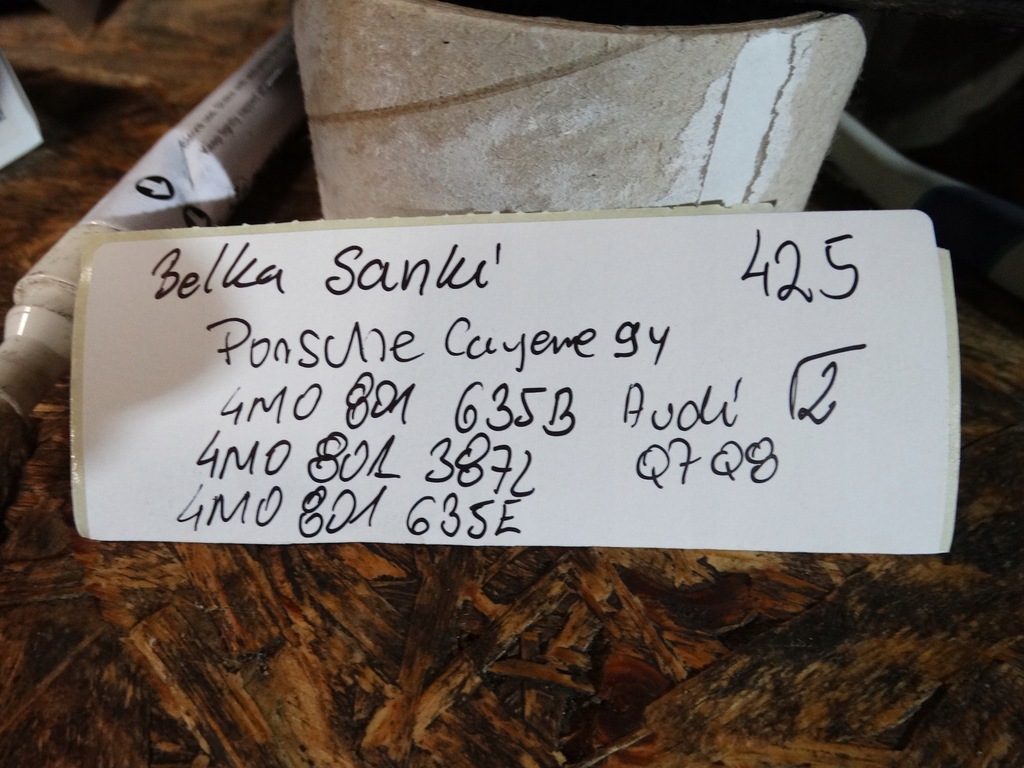 Belka Sanki 425
Porsche Cayene 9Y
4M0 801 635B Audi √2
4M0 801 387L Q7 Q8
4M0 801 635E